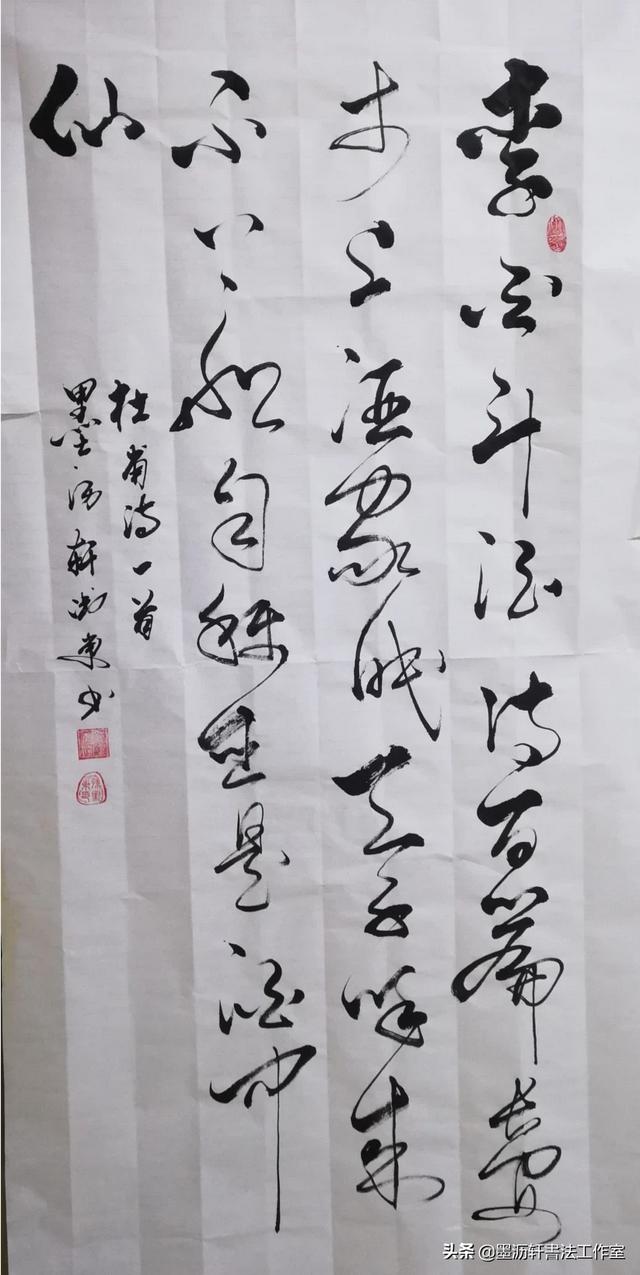 李白斗酒诗百篇长安
市上酒家眠天子呼来
不上船自称臣是酒中
仙
杜甫诗一首
墨沥轩東书
头条 @墨沥轩書法工作室